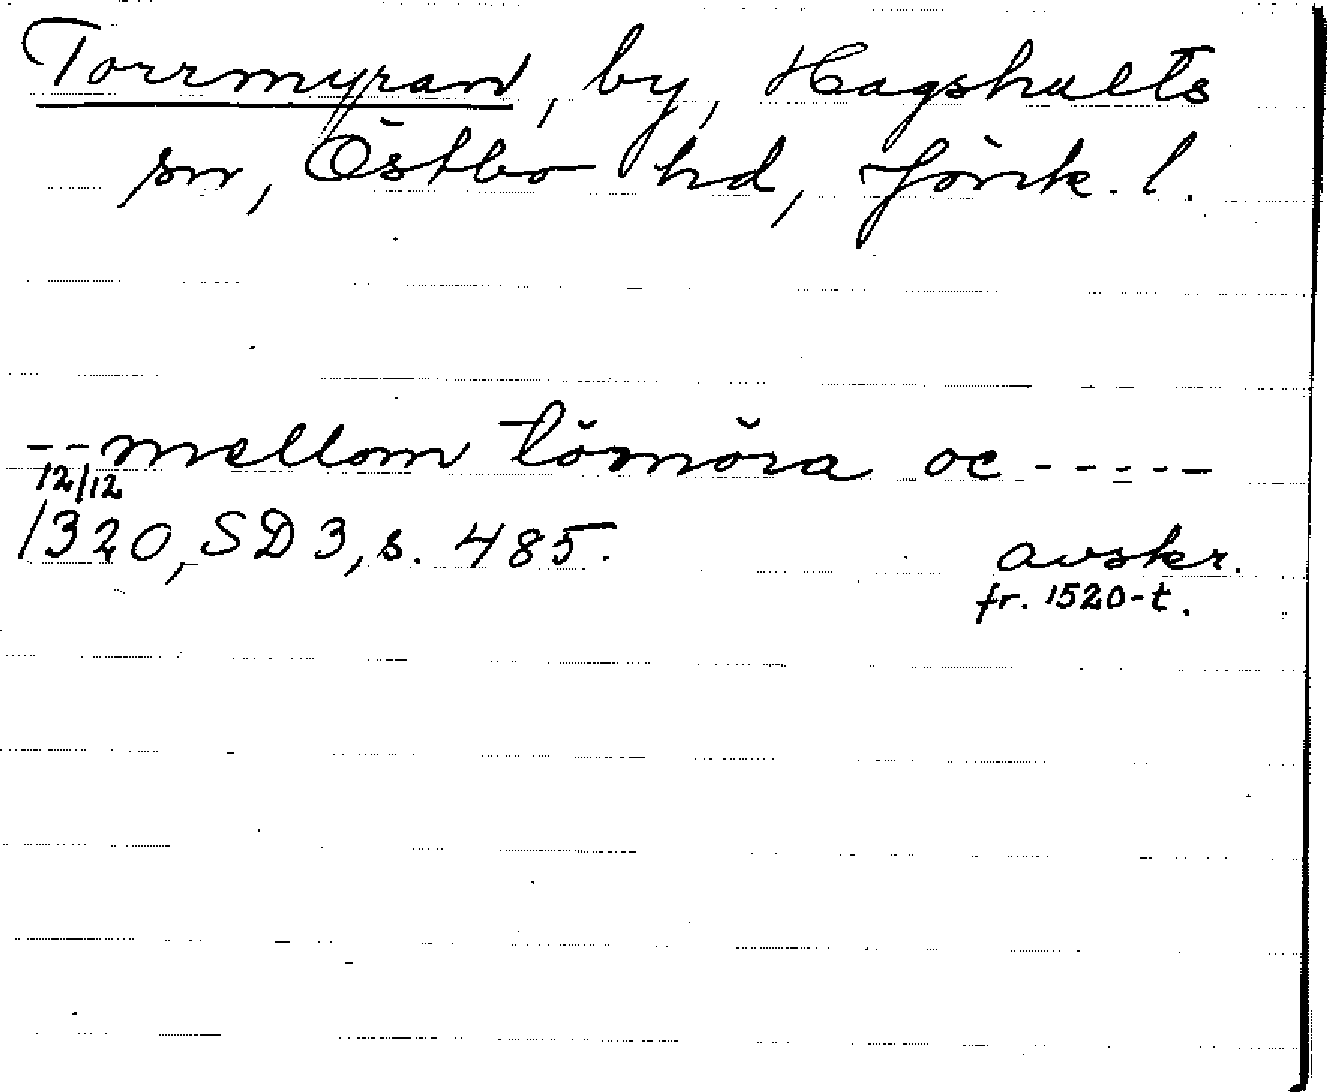 Torrmyran, by, Hagshults
sn, Östbo hd, Jönk. l.
-- mellom tömöra oc -----
12/12
1320, SD 3, s. 485.
avskr.
fr. 1520-t.